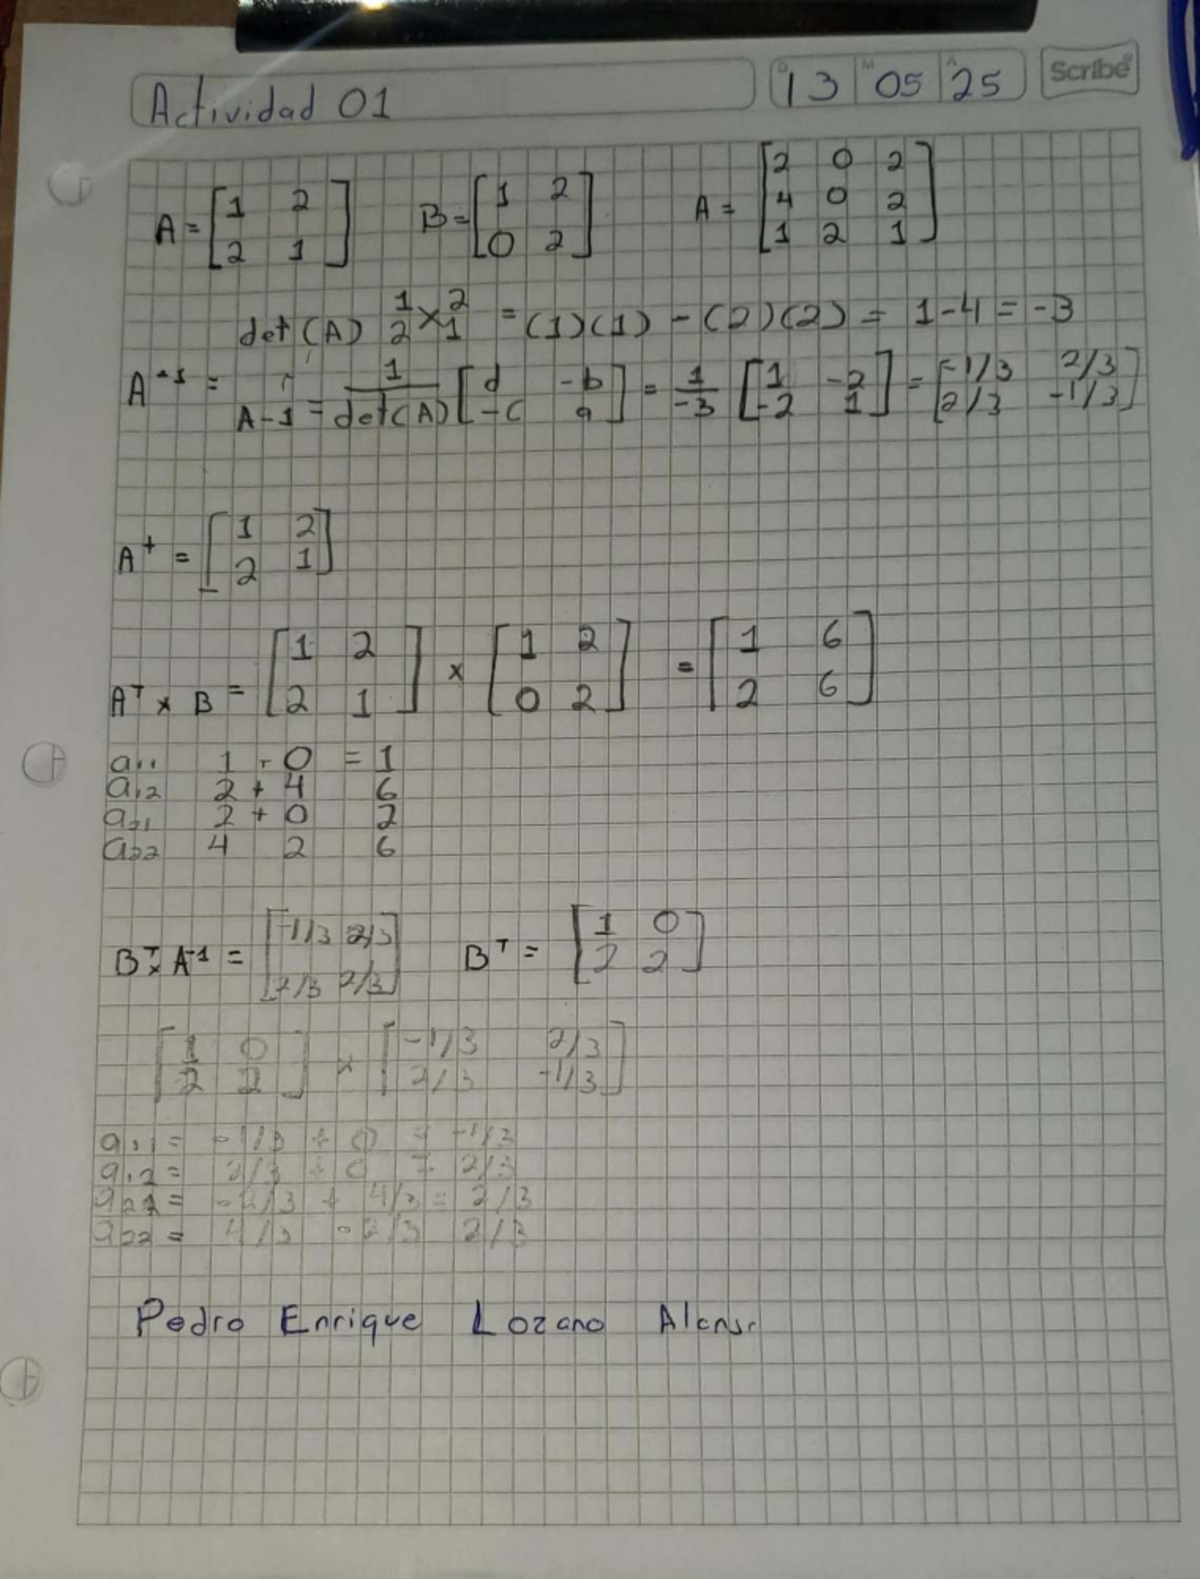 Actividad 01
D 13 M 05 A 25 Scribe
A = [1 2 / 2 1] B = [1 2 / 0 2] A = [2 0 2 / 4 0 2 / 1 2 1]
det (A) 1 2 × 2 1 = (1)(1) - (2)(2) = 1-4 = -3
A^-1 = A-1 = 1/det(A) [d -b / -c a] = 1/-3 [1 -2 / -2 1] = [-1/3 2/3 / 2/3 -1/3]
A^+ = [1 2 / 2 1]
A^T × B = [1 2 / 2 1] × [1 2 / 0 2] = [1 6 / 2 6]
a11 1 + 0 = 1
a12 2 + 4 6
a21 2 + 0 2
a22 4 2 6
B^T × A^-1 = [-1/3 2/3 / 2/3 2/3] B^T = [1 0 / 2 2]
[1 0 / 2 2] × [-1/3 2/3 / 2/3 -1/3]
a11 = -1/3 + 0 = -1/3
a12 = 2/3 + 0 = 2/3
a21 = -2/3 + 4/3 = 2/3
a22 = 4/3 - 2/3 2/3
Pedro Enrique Lozano